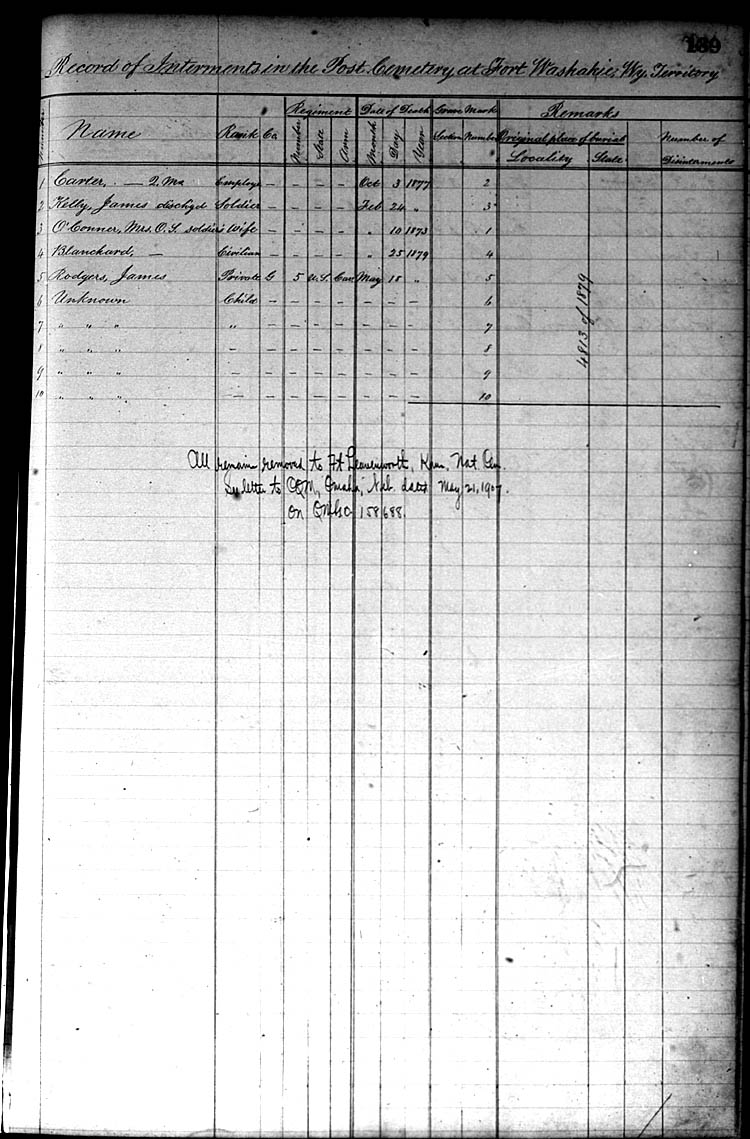 189
Record of Interments in the Post Cemetery at Fort Washakie, Wy. Territory
Regiment Date of Death Grave Mark Remarks
Number Name Rank Co. Number State Arm Month Day Year Section Number Original place of burial Number of
Locality State Disinterments
1 Carter, . — Q. Ms Employe — — — — Oct 3 1877 2
2 Kelly, James dischgd Soldier — — — — Feb 24 " 3
3 O'Conner, Mrs. O. S. soldiers Wife — — — — " 10 1873 1
4 Blanchard, — Civilian — — — — " 25 1879 4
5 Rodgers, James Private G 5 U.S. Cav May 18 " 5
6 Unknown Child — — — — — — — 6
7 " " " " — — — — — — — 7
8 " " " — — — — — — — — 8
9 " " " — — — — — — — — 9
10 " " " — — — — — — — — 10
4813 of 1879
All remains removed to Ft Leavenworth, Kan. Nat. Cem.
See letter to CQM, Omaha, Neb. dated May 21, 1907.
on QMGO 158688.